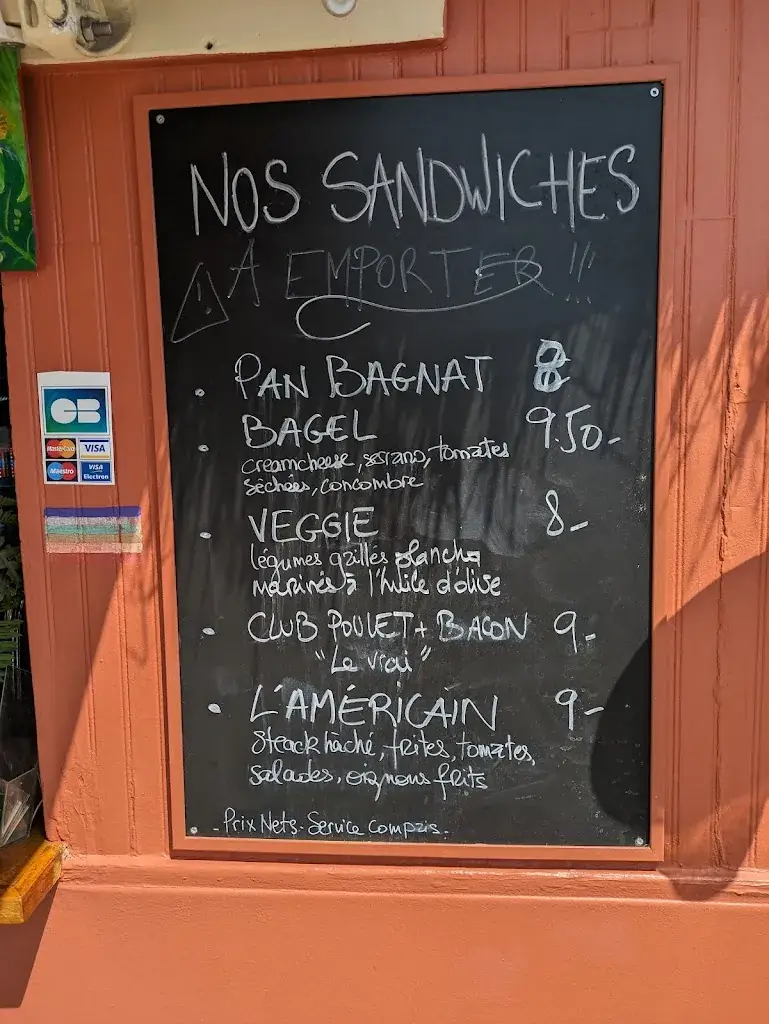 NOS SANDWICHES
A EMPORTER !!!
!
• PAN BAGNAT 8
• BAGEL 9.50-
creamcheese, serano, tomates
séchées, concombre
• VEGGIE 8-
légumes grillés plancha
marinés à l'huile d'olive
• CLUB POULET + BACON 9-
"Le vrai"
• L'AMÉRICAIN 9-
Steack hâché, frites, tomates,
salades, oignons frits
- Prix Nets. Service Compris.
CB
MasterCard VISA
Maestro VISA
Electron